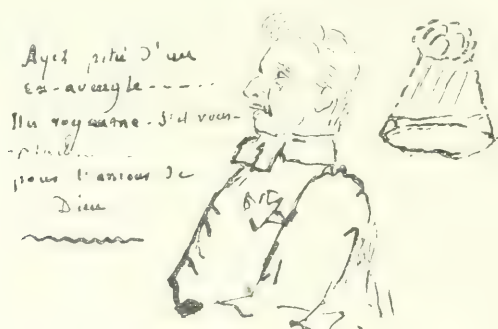 Ayez pitié d'un
ex-aveugle-----
Un royaume-s'il vous-
-plait......
pour l'amour de
Dieu